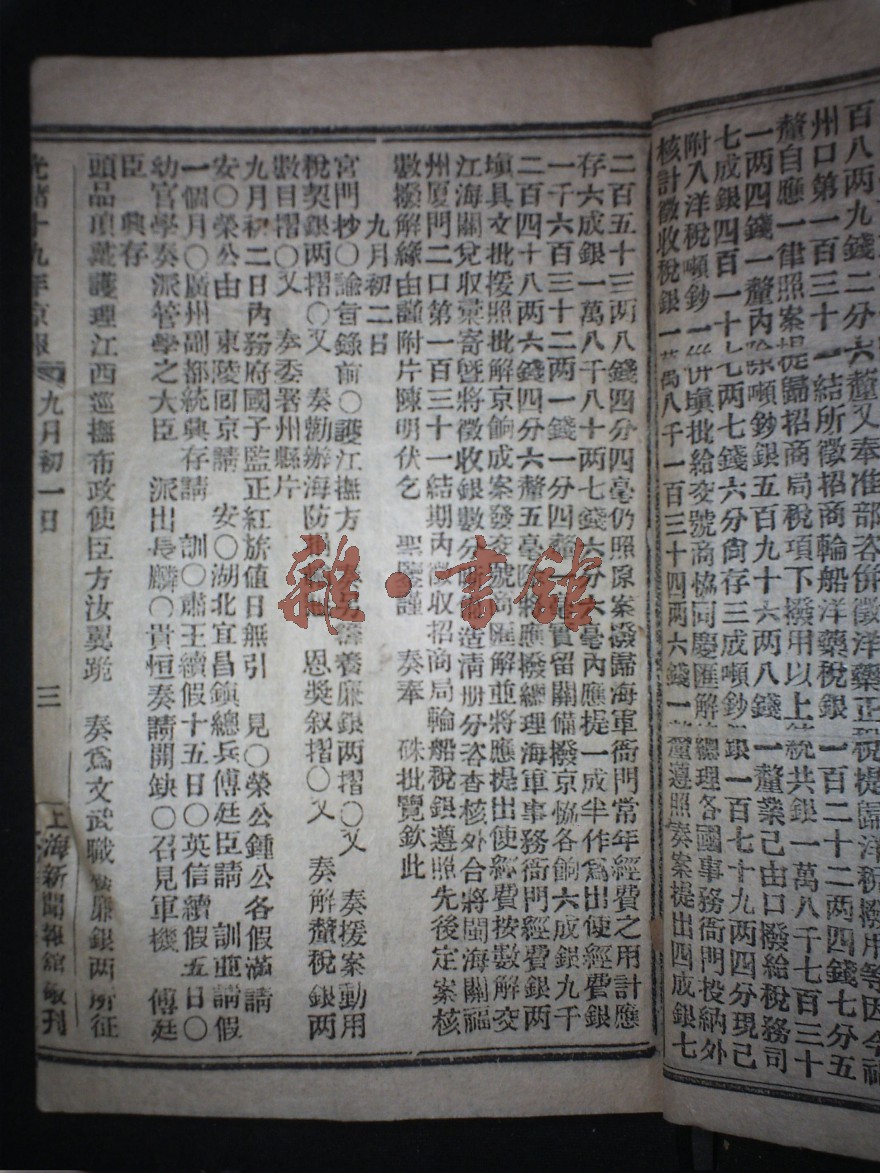 百八两九錢二分六釐又奉准部咨併徵洋藥正稅提歸洋稅撥用等因今福
州口第一百三十一結所徵招商輪船洋藥稅銀一百二十二两四錢七分五
釐自應一律照案提歸招商局稅項下撥用以上統共銀一萬八千七百三十
一两四錢一釐內除噸鈔銀五百九十六两八錢一釐業已由口撥給稅務司
七成銀四百一十七两七錢六分尙存三成噸鈔銀一百七十九两四分現已
附入洋稅噸鈔一併塡批給交號商協同慶匯解總理各國事務衙門投納外
核計徵收稅銀一萬八千一百三十四两六錢釐遵照奏案提出四成銀七
二百五十三两八錢四分四毫仍照原案撥歸海軍衙門常年經費之用計應
存六成銀一萬八千八十两七錢六分六毫內應提一成半作爲出使經費銀
一千六百三十二两一錢一分四釐實留關備撥京協各餉六成銀九千
二百四十八两六錢四分六釐五毫除將應撥總理海軍事務衙門經費銀两
塡具文批援照批解京餉成案發交號商匯解並將應提出使經費按數解交
江海關兌收彙寄曁將徵收銀數分造清册分咨查核外合將閩海關福
州厦門二口第一百三十一結期內徵收招商局輪船稅銀遵照先後定案核
數撥解緣由謹附片陳明伏乞 聖鑒謹 奏奉 硃批覽欽此
九月初二日
宮門抄〇諭旨錄前〇護江撫方養廉銀两摺〇又 奏援案動用
稅契銀两摺〇又 奏勸辦海防 恩奬叙摺〇又 奏解釐稅銀两
數目摺〇又 奏委署州縣片
九月初二日內務府國子監正紅旗值日無引 見〇榮公鍾公各假滿請
安〇榮公由 東陵囘京請 安〇湖北宜昌鎮總兵傅廷臣請 訓並請假
一個月〇廣州副都統興存請 訓〇肅王續假十五日〇英信續假五日〇
幼官學奏派管學之大臣 派出長麟〇貴恒奏請開缺〇召見軍機 傅廷
臣 興存
頭品頂戴護理江西巡撫布政使臣方汝翼跪 奏爲文武職養廉銀两所征
光緒十九年京報 九月初一日 三 上海新聞報館敬刊
雜·書館